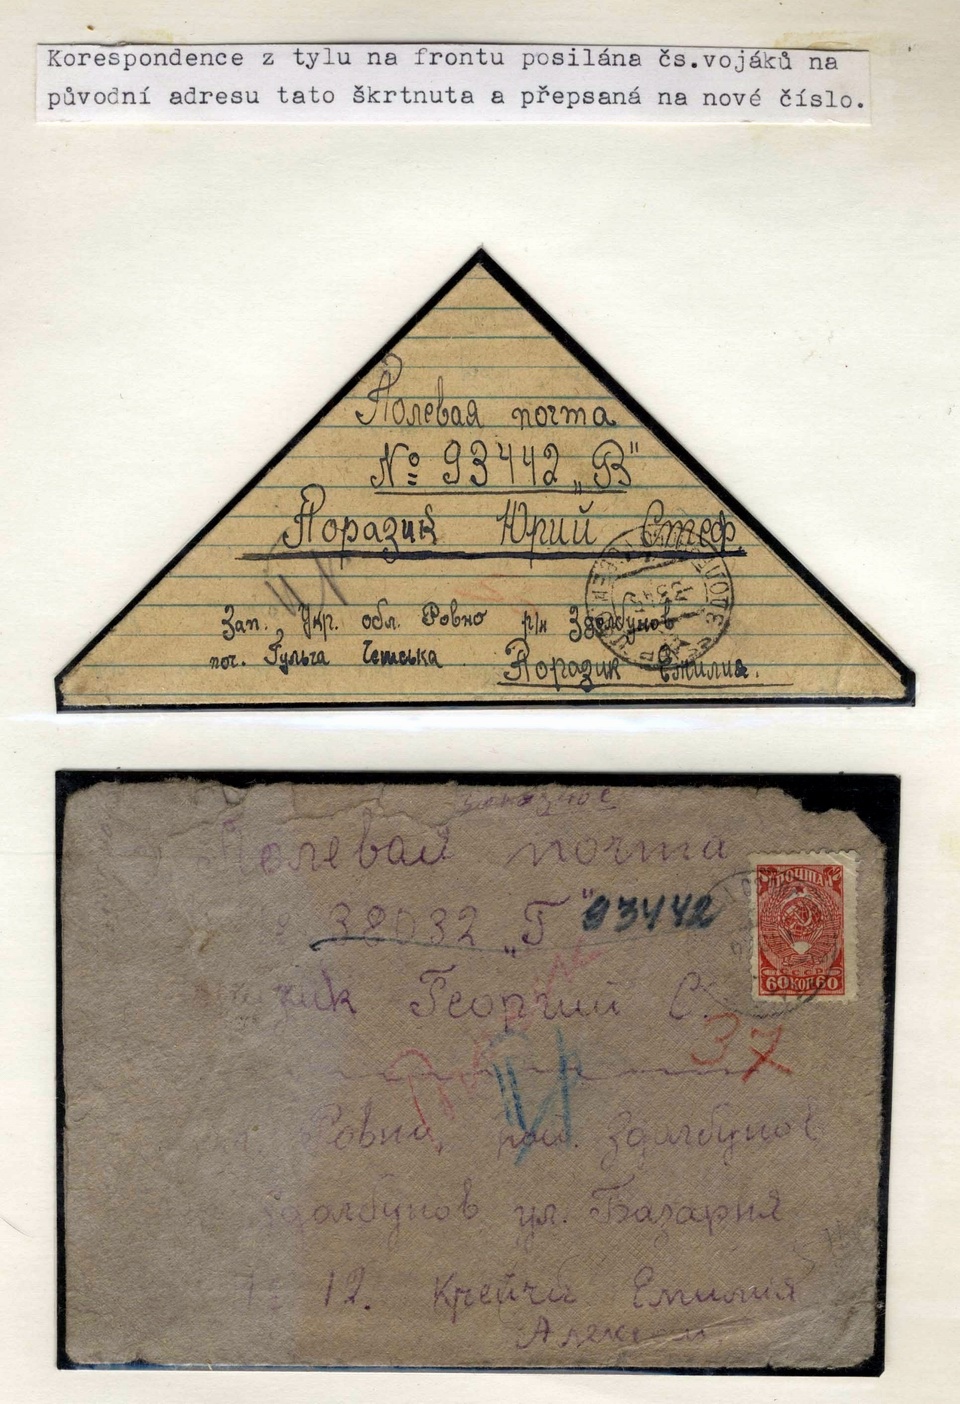 Korespondence z tylu na frontu posilána čs.vojáků na
původní adresu tato škrtnuta a přepsaná na nové číslo.
Полевая почта
№ 93442 „В"
Поразик Юрий Стеф.
Зап. Укр. обл. Ровно р/н Здолбунов
поч. Гульча Чешська
Поразик Емилия.
заказное
Полевая почта
38032 „Г" 93442
Георгий С.
37
Ровно, Здолбунов
Здолбунов ул. Базарня
12. Крейчи Емилия
ПОЧТА
СССР
60 КОП 60